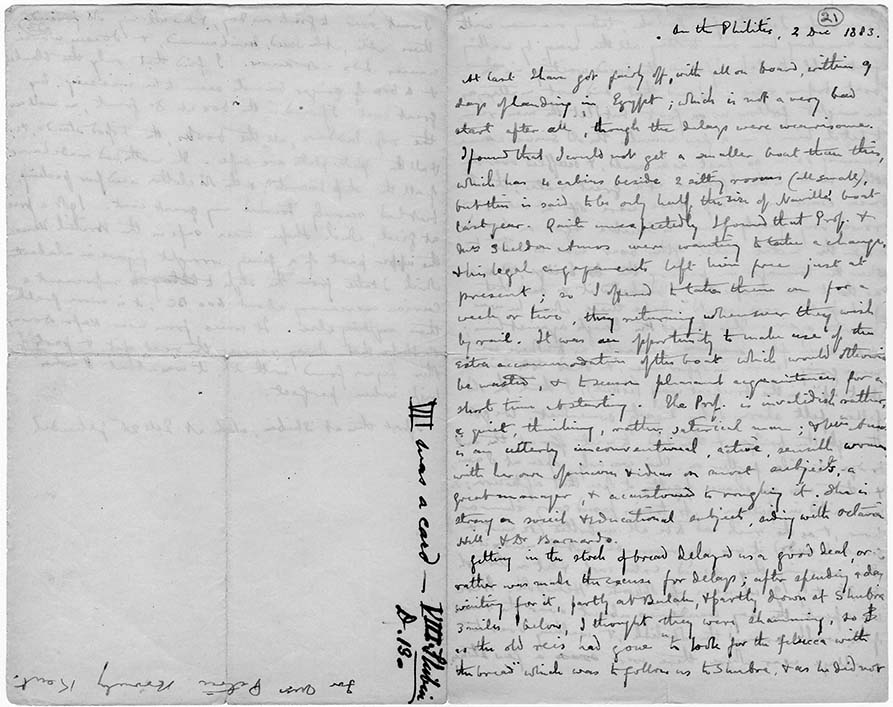 21
On the Philitis, 2 Dec 1883.
At last I have got fairly off, with all on board, within 9
days of landing in Egypt; which is not a very bad
start after all, though the delays were wearisome.
I found that I could not get a smaller boat than this,
which has 4 cabins beside 2 sitting rooms (all small),
but this is said to be only half the size of Naville's boat
last year. Quite unexpectedly I found that Prof. &
Mrs Sheldon Amos were wanting to take a change,
& his legal engagements left him free just at
present; so I offered to take them on for a
week or two they returning whensoever they wish
by rail. It was an opportunity to make use of the
extra accommodation of the boat which would otherwise
be wasted, & to secure pleasant acquaintances for a
short time at starting. The Prof. is invalidish rather,
a quiet, thinking, rather satirical man; & Mrs
is an utterly unconventional, active, sensible woman
with her own opinions & ideas on most subjects, a
great manager, & accustomed to roughing it. She is
strong on social & educational subject, siding with Octavia
Hill & Dr Barnardo.
Getting in the stock of bread delayed us a good deal, or
rather was made the excuse for delays; after spending a day
waiting for it, partly at Bulak, & partly down at Shubra
3 miles below, I thought they were shamming, so
as the old reis had gone "to look for the felucca with
the bread" which was to follow us to Shubra, & as he did not
VII was a card — VIII
D. 13.
For Miss Petrie Bromley Kent.